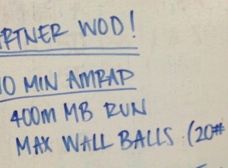 RTNER WOD!
0 MIN AMRAP
400m MB RUN
MAX WALL BALLS (20#